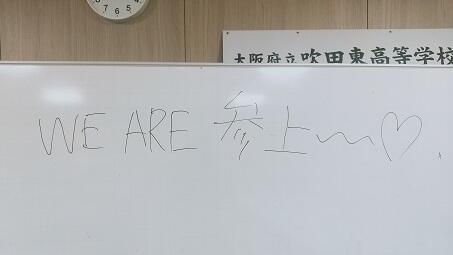 8 7 6 5 4
大阪府立吹田東高等学校
WE ARE 参上〜♡